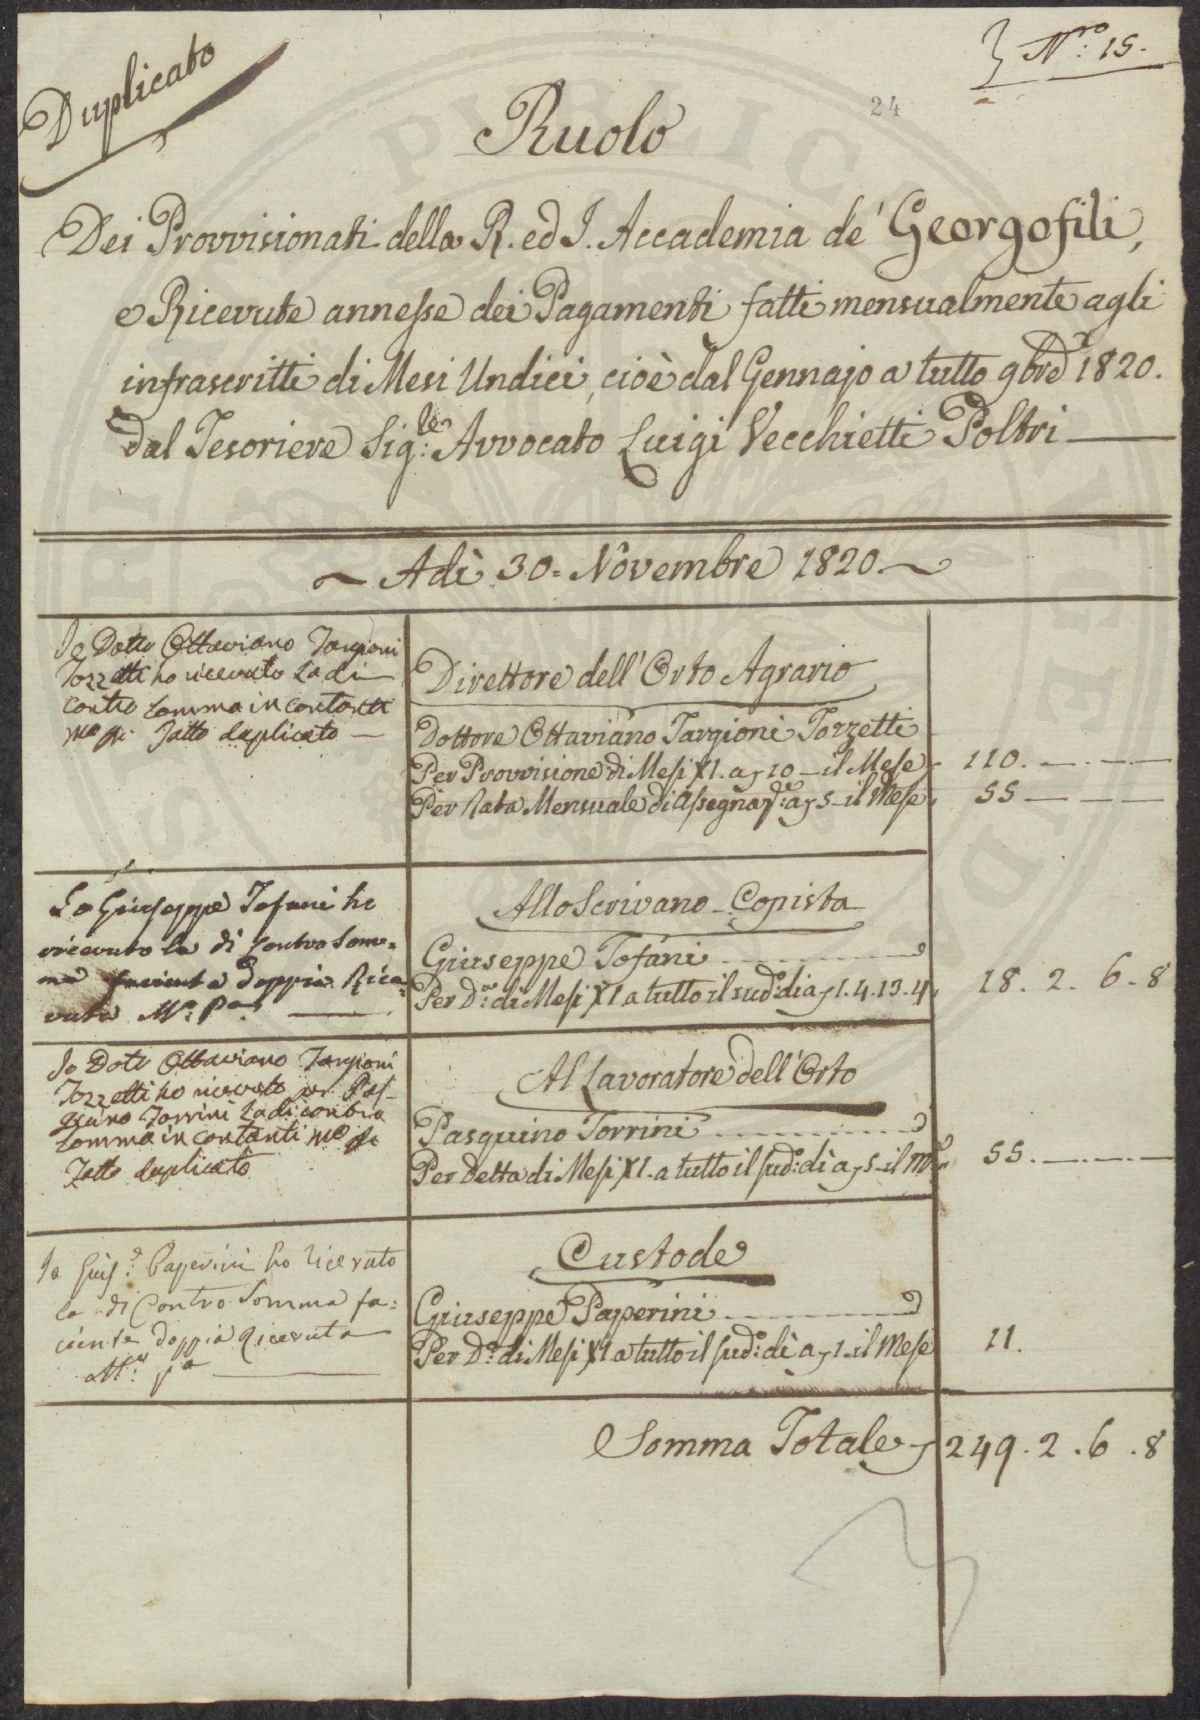 Duplicato
Nro: 15.
24
Ruolo
Dei Provvisionati della R. ed I. Accademia de' Georgofili,
e Ricevute annesse dei Pagamenti fatti mensualmente agli
infrascritti di Mesi Undici, cioè dal Gennajo a tutto 9bre 1820.
Dal Tesoriere Sigre: Avvocato Luigi Vecchietti Poltri
Adì 30. Novembre 1820.
Io Dottr Ottaviano Targioni
Tozzetti ho ricevuto la di
contro somma in contanti
Mo pi. Fatto duplicato
Direttore dell'Orto Agrario
Dottore Ottaviano Targioni Tozzetti
Per Provvisione di Mesi XI. a 10 il Mese
110.
Per Rata Mensuale di Assegna a 5 il Mese
55
Io Giuseppe Tofani ho
ricevuto la di contro som=
ma facienta doppia Rice=
vuta Mo: Pa
Allo Scrivano Copista
Giuseppe Tofani
Per Da: di Mesi XI. a tutto il sudo: dì a 1.4.13.4
18. 2. 6. 8
Io Dottr Ottaviano Targioni
Tozzetti ho ricevuto per Pas=
quino Torrini la di contro
somma in contanti Mo pi
Fatto duplicato
Al Lavoratore dell'Orto
Pasquino Torrini
Per Detta di Mesi XI. a tutto il sudo: dì a 5 il Me
55.
Io Giuse: Paperini ho ricevuto
la di Contro Somma fa=
ciente doppia Ricevuta
Mo: pa
Custode
Giuseppe Paperini
Per Da: di Mesi XI. a tutto il sudo: dì a 1. il Mese
11.
Somma Totale
249. 2. 6. 8